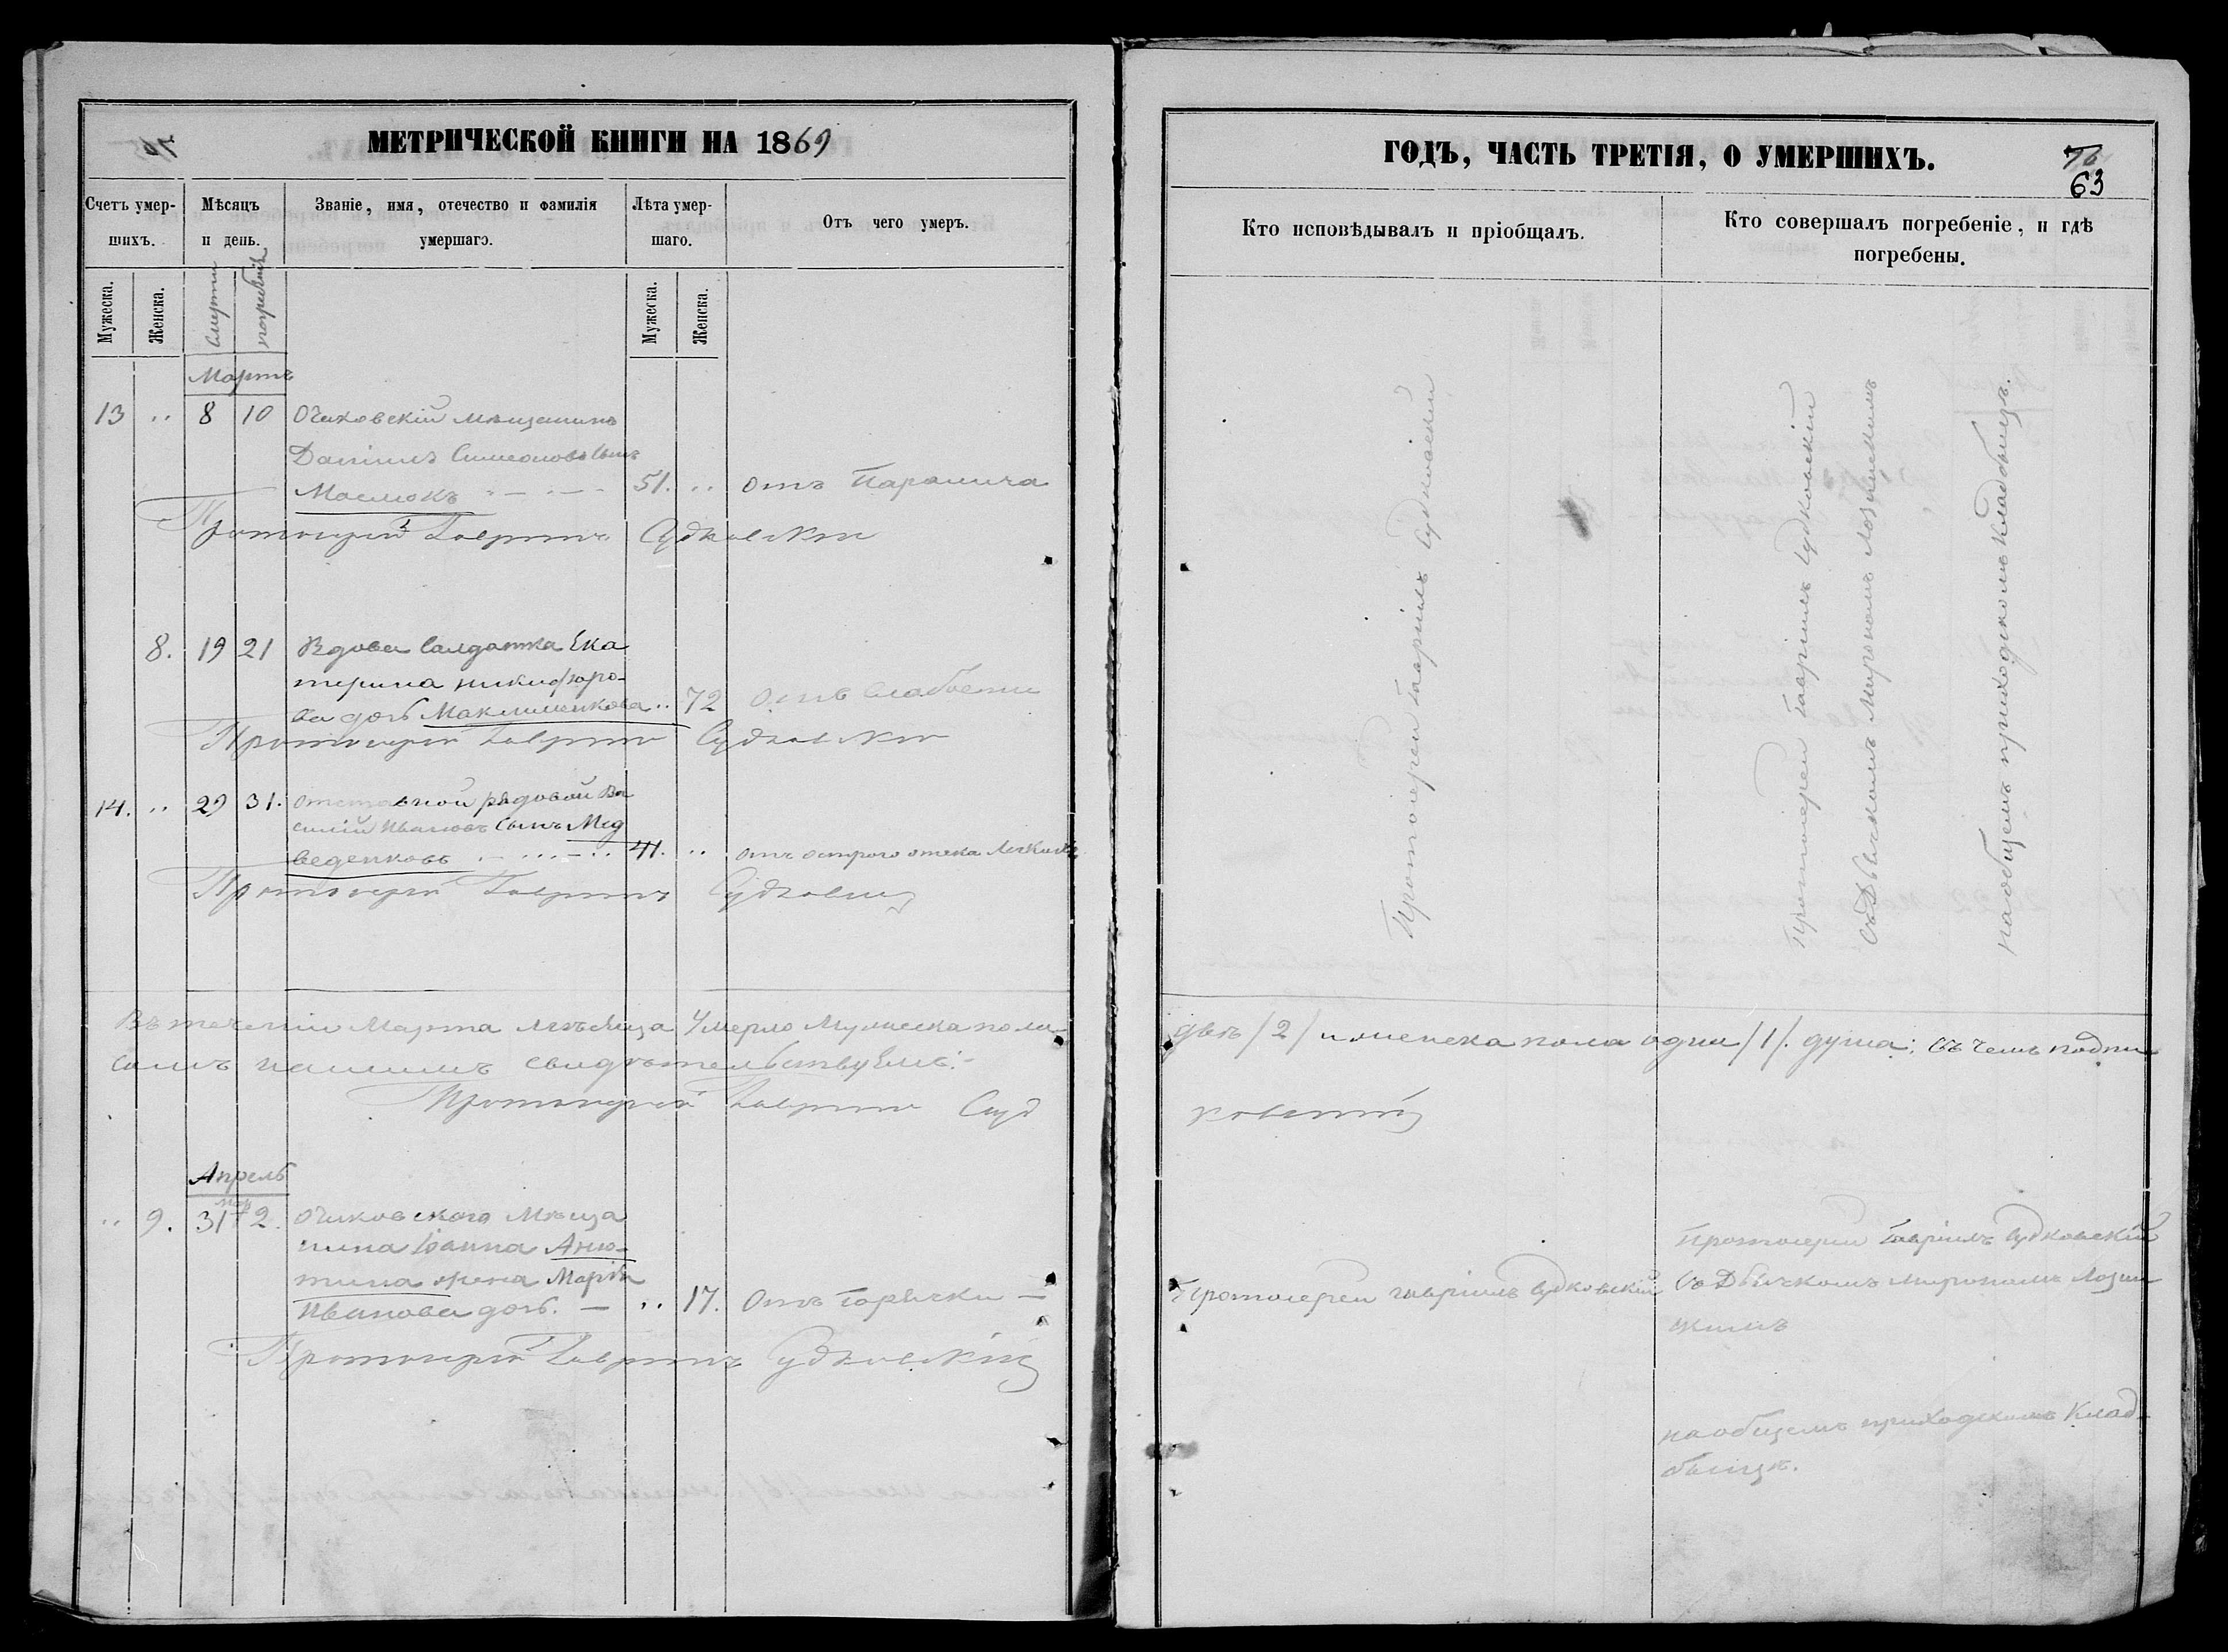 МЕТРИЧЕСКОЙ КНИГИ НА 1869
Счетъ умер-
шихъ.
Мѣсяцъ
и день.
Званіе, имя, отечество и фамилія
умершаго.
Лѣта умер-
шаго.
Отъ чего умеръ.
Мужеска.
Женска.
Смерти
погребенія
Мужеска.
Женска.
Мартъ
13 .. 8 10 Очаковскій мѣщанинъ
Даніилъ Симеоновъ сынъ
Маслюкъ 51. .. отъ Паралича
Протоіерей Гавріилъ Судковскій
8. 19 21 Вдова Салдатка Ека
терина Никифоро-
ва дочь Маклименкова .. 72 отъ Слабости
Протоіерей Гавріилъ Судковскій
14. .. 29 31. отставной рядовой Ва
силій Ивановъ сынъ Мед
веденковъ 41. .. отъ острого отека Легкихъ
Протоіерей Гавріилъ Судковскій
Въ теченіи Марта мѣсяца умерло Мужеска пола
сомъ нашимъ свидѣтельствуемъ:-
Протоіерей Гавріилъ Суд
Апрель
.. 9. 31 Мар 2. Очаковского Мѣща
нина Іоанна Аню-
тина жена Марія
Иванова дочь. — .. 17. Отъ Горячки —
Протоіерей Гавріилъ Судковскій
ГОДЪ, ЧАСТЬ ТРЕТІЯ, О УМЕРШИХЪ.
76
63
Кто исповѣдывалъ и пріобщалъ.
Кто совершалъ погребеніе, и гдѣ
погребены.
Протоіерей Гавріилъ Судковскій
Протоіерей Гавріилъ Судковскій
съ Дьячкомъ Мирономъ Лозинскимъ
на общемъ приходскомъ Кладбищѣ.
двѣ /2/ и женска пола одна /1/. душа: въ чемъ подпи
ковскій
Протоіерей Гавріилъ Судковскій
Протоіерей Гавріилъ Судковскій
съ Дьячкомъ Мирономъ Лозин
скимъ
на общемъ приходскомъ Клад-
бищѣ.